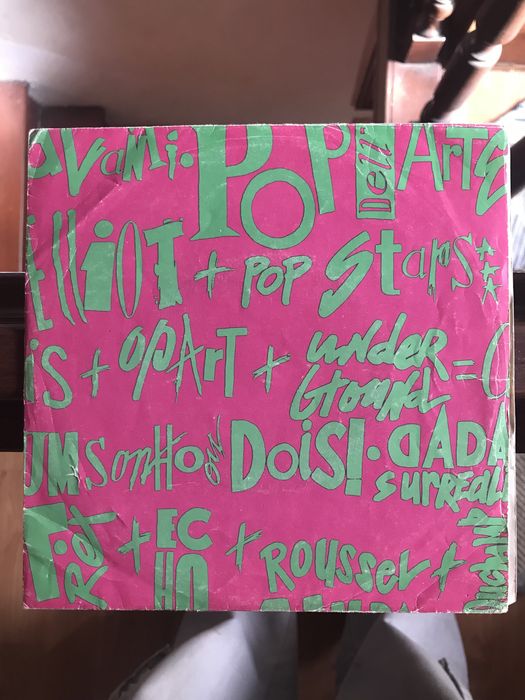 AVAMI. POP Dell' ArTE
Elliot + POP Stars
iS + OpArT + underGround =
UM SonHo ou DoiS! . DADA surreal
+ ECHO + Rousseu +